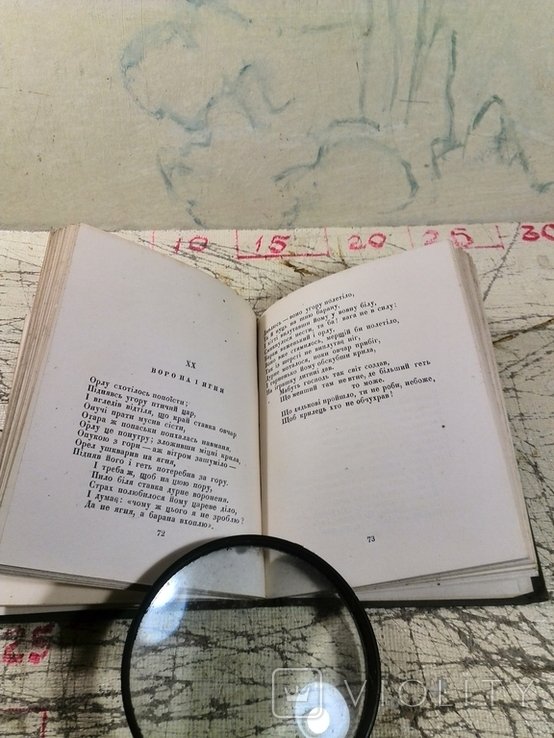 10 15 20 25 30
XX
ВОРОНА І ЯГНЯ
Орлу схотілось попоїсти;
Піднявсь угору птичий цар,
І вглелів відтіля, що край ставка овчар
Онучі прати мусив сісти,
Отара ж попаски попхалась навмання.
Орлу це понутру; зложивши міцні крила,
Опукою з гори — аж вітром зашуміло —
Орел ушкварив на ягня,
Підняв його і геть потеребив за гору.
І треба ж, щоб на цюю пору,
Пило біля ставка дурне вороненя.
Страх полюбилося йому цареве діло,
І дума: «чому ж цього я не зроблю?
Да не ягня, а барана вхоплю».
72
— воно угору полетіло,
й хуць на шию барану,
йому у вовну білу,
нести, та ба! вага не в силу:
і орлу,
вже стямилось, мерщій би полетіло,
із шерсті не виплутає ніг,
мотали, поки овчар прибіг
йому обскубши крила,
На іграшку дитині дав.
Мабуть господь так світ создав,
Що менший там не втне, де більший геть
то може.
Що дядькові пройшло, ти не роби, небоже,
Щоб крилець хто не обчухрав!
73
25
VIOLITY